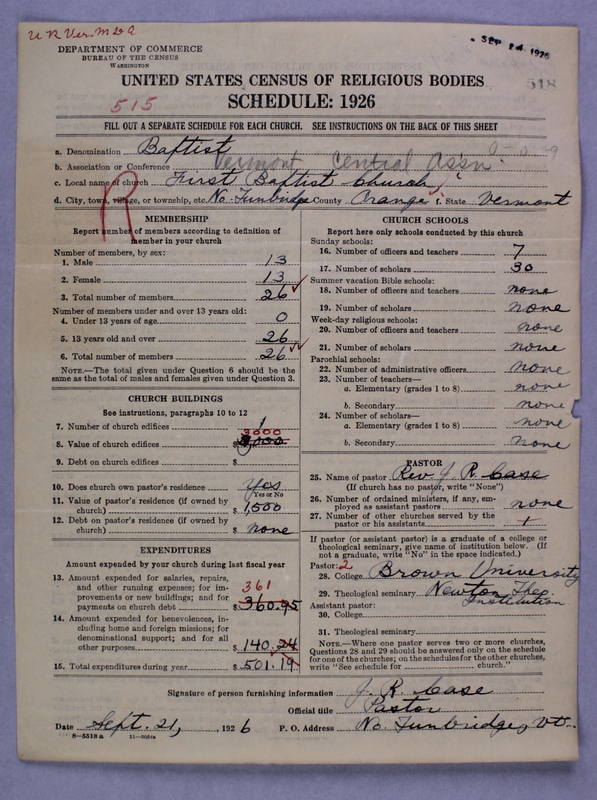 U R Ver. M & C
SEP 24 1926
DEPARTMENT OF COMMERCE
BUREAU OF THE CENSUS
WASHINGTON
UNITED STATES CENSUS OF RELIGIOUS BODIES
518
515
SCHEDULE: 1926
FILL OUT A SEPARATE SCHEDULE FOR EACH CHURCH. SEE INSTRUCTIONS ON THE BACK OF THIS SHEET
a. Denomination Baptist
b. Association or Conference Vermont Central Assn.
c. Local name of church First Baptist Church
d. City, town, village, or township, etc. No. Tunbridge County Orange f. State Vermont
R
MEMBERSHIP
Report number of members according to definition of
member in your church
Number of members, by sex:
1. Male 13
2. Female 13
3. Total number of members 26
Number of members under and over 13 years old:
4. Under 13 years of age 0
5. 13 years old and over 26
6. Total number of members 26
NOTE.—The total given under Question 6 should be
same as the total of males and females given under Question 3.
CHURCH BUILDINGS
See instructions, paragraphs 10 to 12
7. Number of church edifices 1
3000
8. Value of church edifices $
9. Debt on church edifices $
10. Does church own pastor's residence Yes
Yes or No
11. Value of pastor's residence (if owned by
church) $ 1,500
12. Debt on pastor's residence (if owned by
church) $ none
EXPENDITURES
Amount expended by your church during last fiscal year
13. Amount expended for salaries, repairs,
and other running expenses; for im-
provements or new buildings; and for
361
payments on church debt $ 360.95
14. Amount expended for benevolences, in-
cluding home and foreign missions; for
denominational support; and for all
other purposes $ 140.24
15. Total expenditures during year $ 501.19
CHURCH SCHOOLS
Report here only schools conducted by this church
Sunday schools:
16. Number of officers and teachers 7
17. Number of scholars 30
Summer vacation Bible schools:
18. Number of officers and teachers none
19. Number of scholars none
Week-day religious schools:
20. Number of officers and teachers none
21. Number of scholars none
Parochial schools:
22. Number of administrative officers none
23. Number of teachers—
a. Elementary (grades 1 to 8) none
b. Secondary none
24. Number of scholars—
a. Elementary (grades 1 to 8) none
b. Secondary none
PASTOR
25. Name of pastor Rev. J. R. Case
(If church has no pastor, write "None")
26. Number of ordained ministers, if any, em-
ployed as assistant pastors none
27. Number of other churches served by the
pastor or his assistants 1
If pastor (or assistant pastor) is a graduate of a college or
theological seminary, give name of institution below. (If
not a graduate, write "No" in the space indicated.)
Pastor: 2
28. College Brown University
29. Theological seminary Newton Theo.
Institution
Assistant pastor:
30. College
31. Theological seminary
NOTE.—Where one pastor serves two or more churches,
Questions 28 and 29 should be answered only on the schedule
for one of the churches; on the schedules for the other churches,
write "See schedule for church."
Signature of person furnishing information J. R. Case
Official title Pastor
Date Sept. 21, 1926 P. O. Address No. Tunbridge, Vt.
8—5518 a